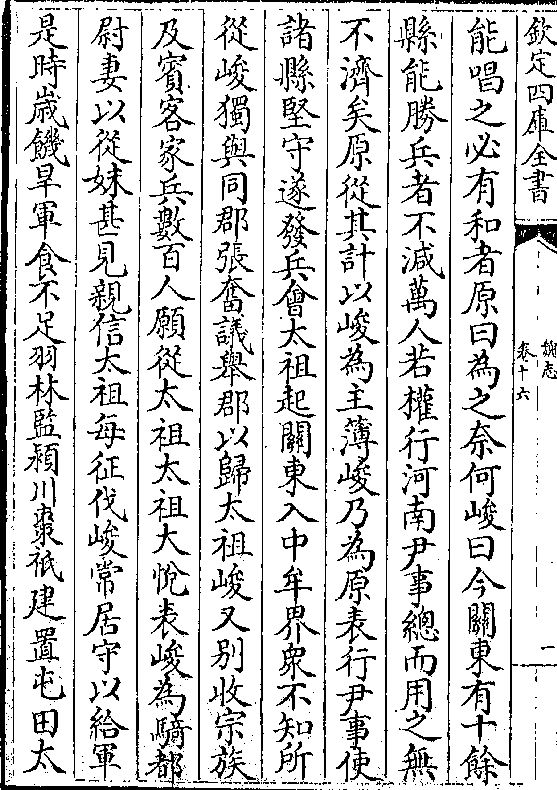 欽定四庫全書
魏志
卷十六
一
能唱之必有和者原曰為之奈何峻曰今關東有十餘
縣能勝兵者不減萬人若權行河南尹事總而用之無
不濟矣原從其計以峻為主簿峻乃為原表行尹事使
諸縣堅守遂發兵會太祖起關東入中牟界衆不知所
從峻獨與同郡張奮議舉郡以歸太祖峻又别收宗族
及賓客家兵數百人願從太祖太祖大悅表峻為騎都
尉妻以從妹甚見親信太祖每征伐峻常居守以給軍
是時歲饑旱軍食不足羽林監潁川棗祗建置屯田太